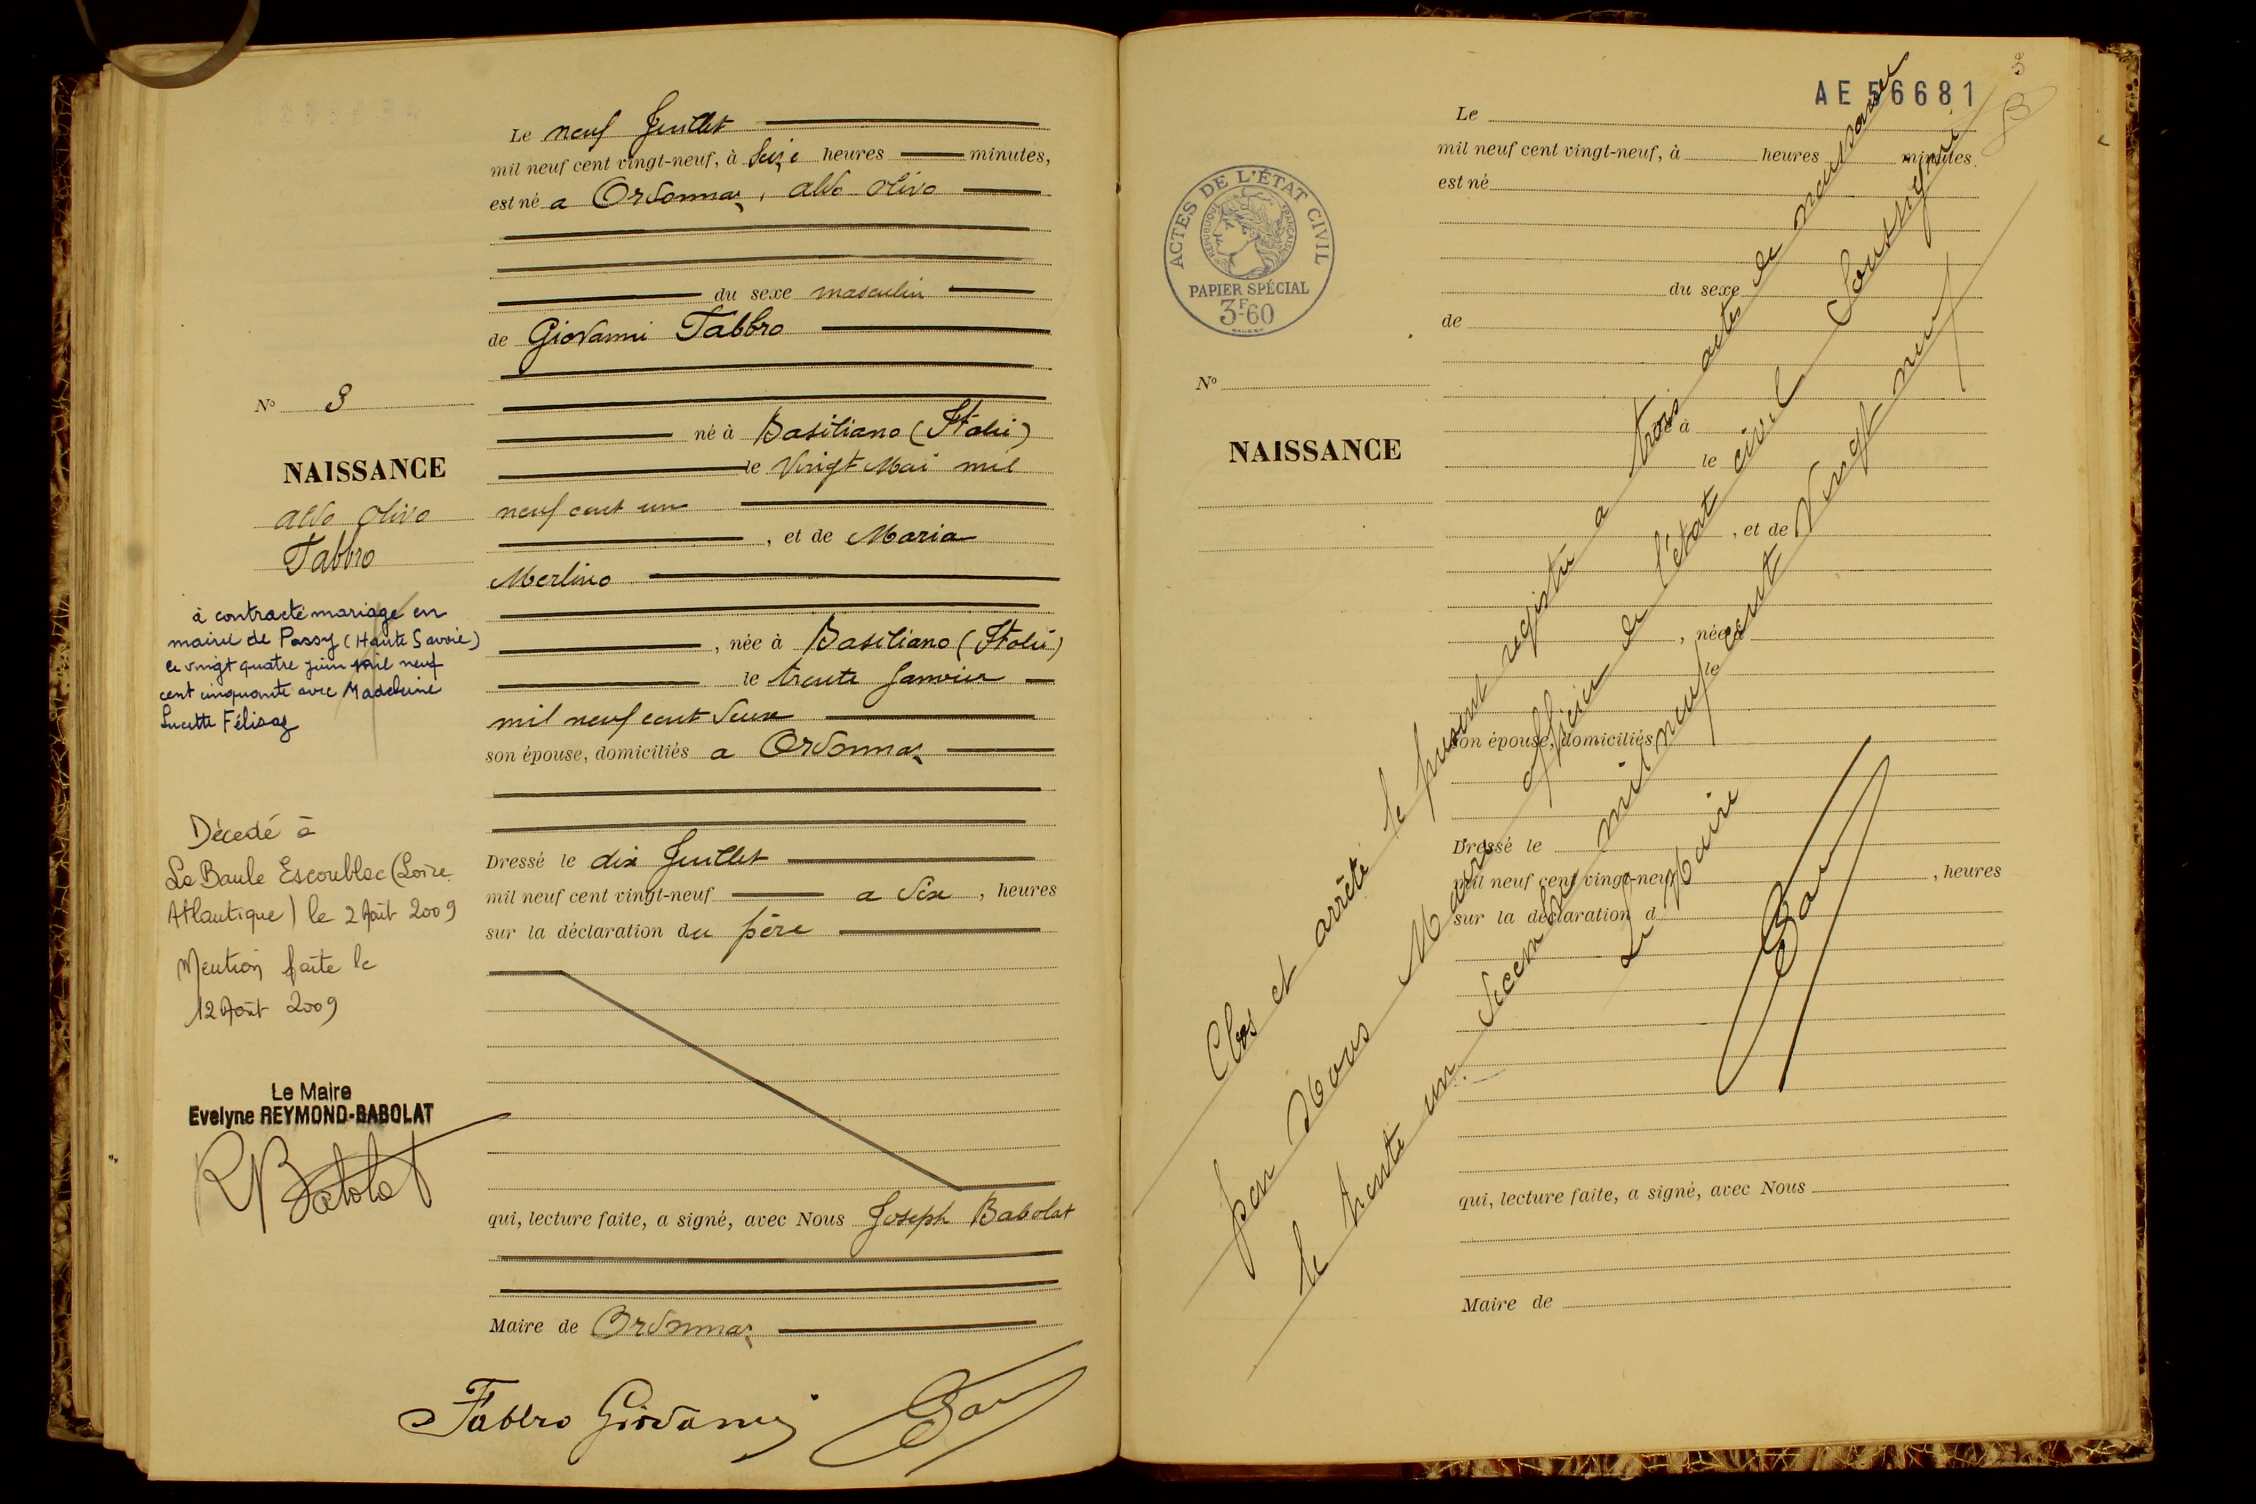 Le neuf Juillet
mil neuf cent vingt-neuf, à Seize heures minutes,
est né a Ordonnaz, Aldo Olivo
du sexe masculin
de Giovanni Fabbro
né à Basiliano (Italie)
le Vingt Mai mil
neuf cent un
, et de Maria
Merlino
, née à Basiliano (Italie)
le trente Janvier
mil neuf cent deux
son épouse, domiciliés a Ordonnaz
Dressé le dix Juillet
mil neuf cent vingt-neuf a dix, heures
sur la déclaration du père
qui, lecture faite, a signé, avec Nous Joseph Babolat
Maire de Ordonnaz
Fabbro Giovanni
Nº 3
NAISSANCE
Aldo Olivo
Fabbro
a contracté mariage en
mairie de Passy (Haute Savoie)
le vingt quatre juin mil neuf
cent cinquante avec Madeleine
Lucette Félisaz
Décédé à
La Baule Escoublac (Loire
Atlantique) le 2 Août 2009
Mention faite le
12 Août 2009
Le Maire
Evelyne REYMOND-BABOLAT
RBabolat
AE 56681
ACTES DE L'ÉTAT CIVIL
RÉPUBLIQUE FRANÇAISE
PAPIER SPÉCIAL
3F60
Nº
NAISSANCE
Le
mil neuf cent vingt-neuf, à heures minutes
est né
du sexe
de
né à
le
, et de
, née à
le
son épouse, domiciliés
Dressé le
mil neuf cent vingt-neuf , heures
sur la déclaration d
qui, lecture faite, a signé, avec Nous
Maire de
Clos et arrêté le présent registre a trois actes de naissance
par Nous Maire officier de l'état civil soussigné
le trente un décembre mil neuf cent Vingt neuf
Le Maire